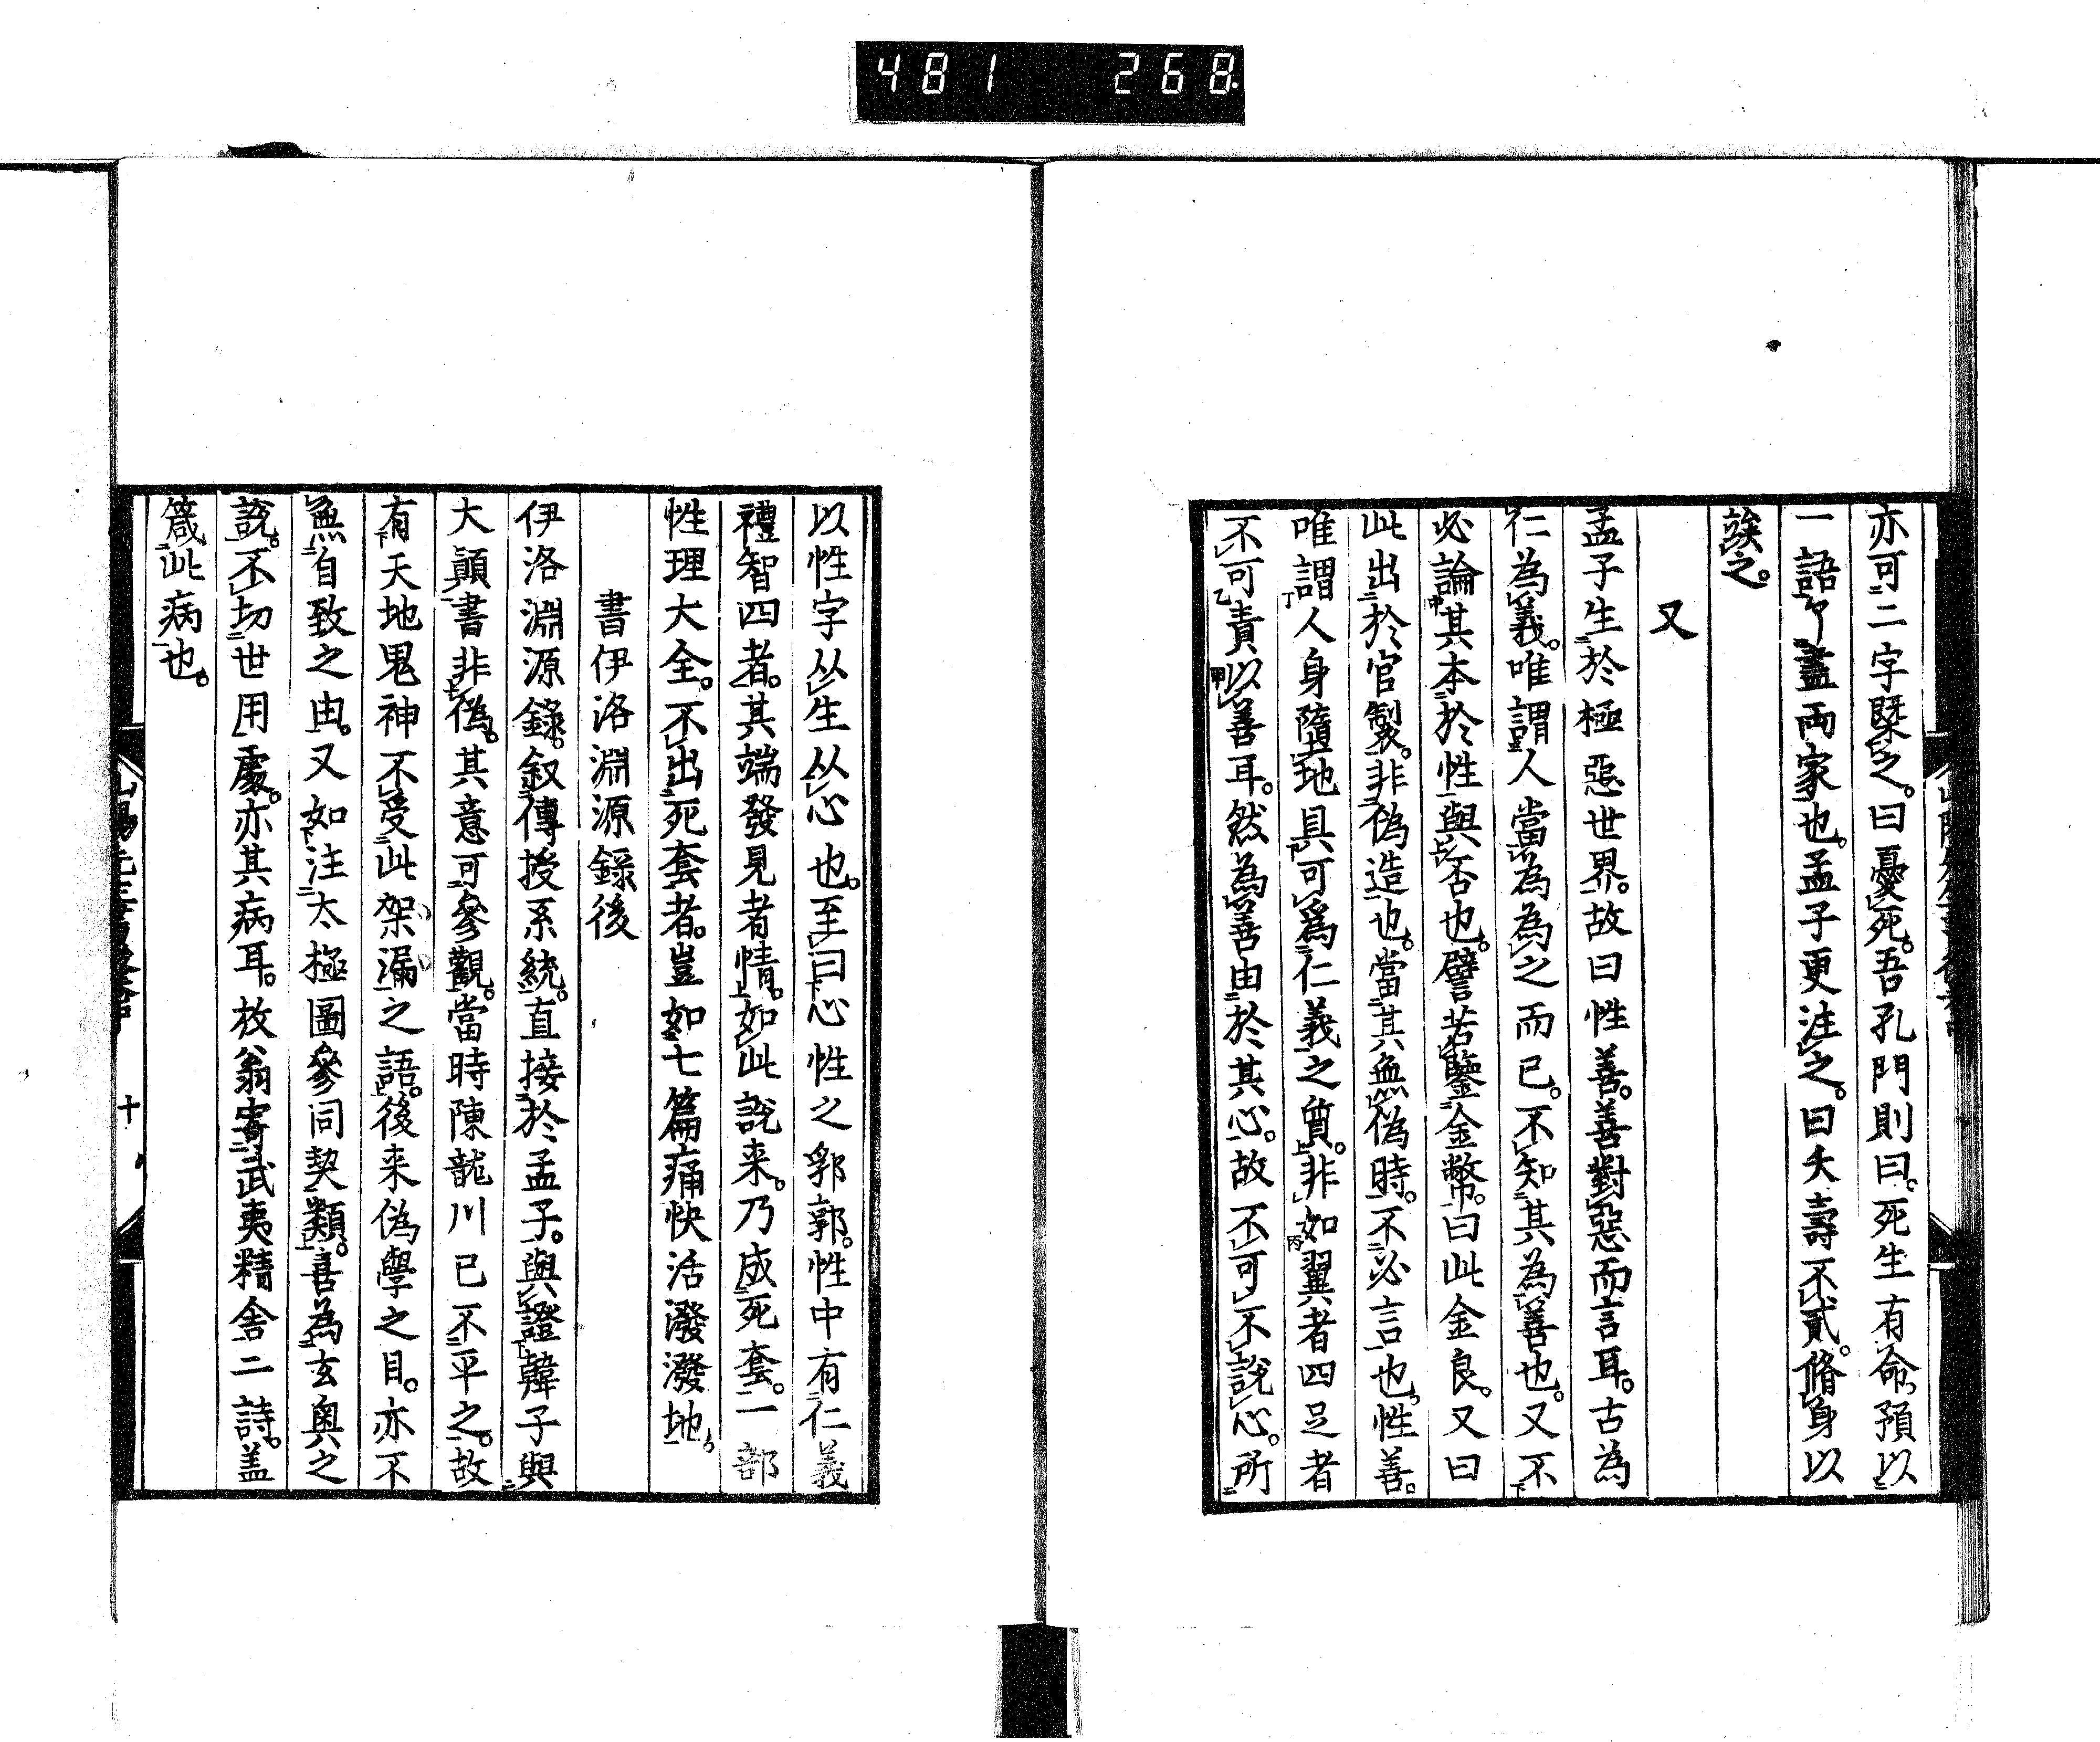 481 268
亦可二字槩之。曰憂死。吾孔門則曰。死生有命。預以
一語了蓋兩家也。孟子更注之。曰夭壽不貳。脩身以
竢之。
又
孟子生於極惡世界。故曰性善。善對惡而言耳。古為
仁為義。唯謂人當為為之而已。不知其為善也。又不
必論其本於性與否也。譬若鑒金幣。曰此金良。又曰
此出於官製。非偽造也。當其無偽時。不必言也。性善。
唯謂人身墮地具可為仁義之質。非如翼者四足者
不可責以善耳。然為善由於其心。故不可不說心。所
以性字从生从心也。至曰心性之郛郭。性中有仁義
禮智四者。其端發見者情。如此說来。乃成死套。一部
性理大全。不出死套者。豈如七篇痛快活潑潑地。
書伊洛淵源錄後
伊洛淵源錄。叙傳授系統。直接於孟子。與證韓子與
大顛書非偽。其意可參觀。當時陳龍川已不平之。故
有天地鬼神不受此架漏之語。後来偽學之目。亦不
無自致之由。又如注太極圖參同契類。喜為玄奧之
說。不切世用處。亦其病耳。放翁寄武夷精舍二詩。盖
箴此病也。
十